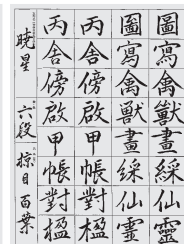 圖寫禽獸畫綵仙靈
圖寫禽獸畫綵仙靈
丙舍傍啟甲帳對楹
丙舍傍啟甲帳對楹
曉星 六段 掠目 百葉